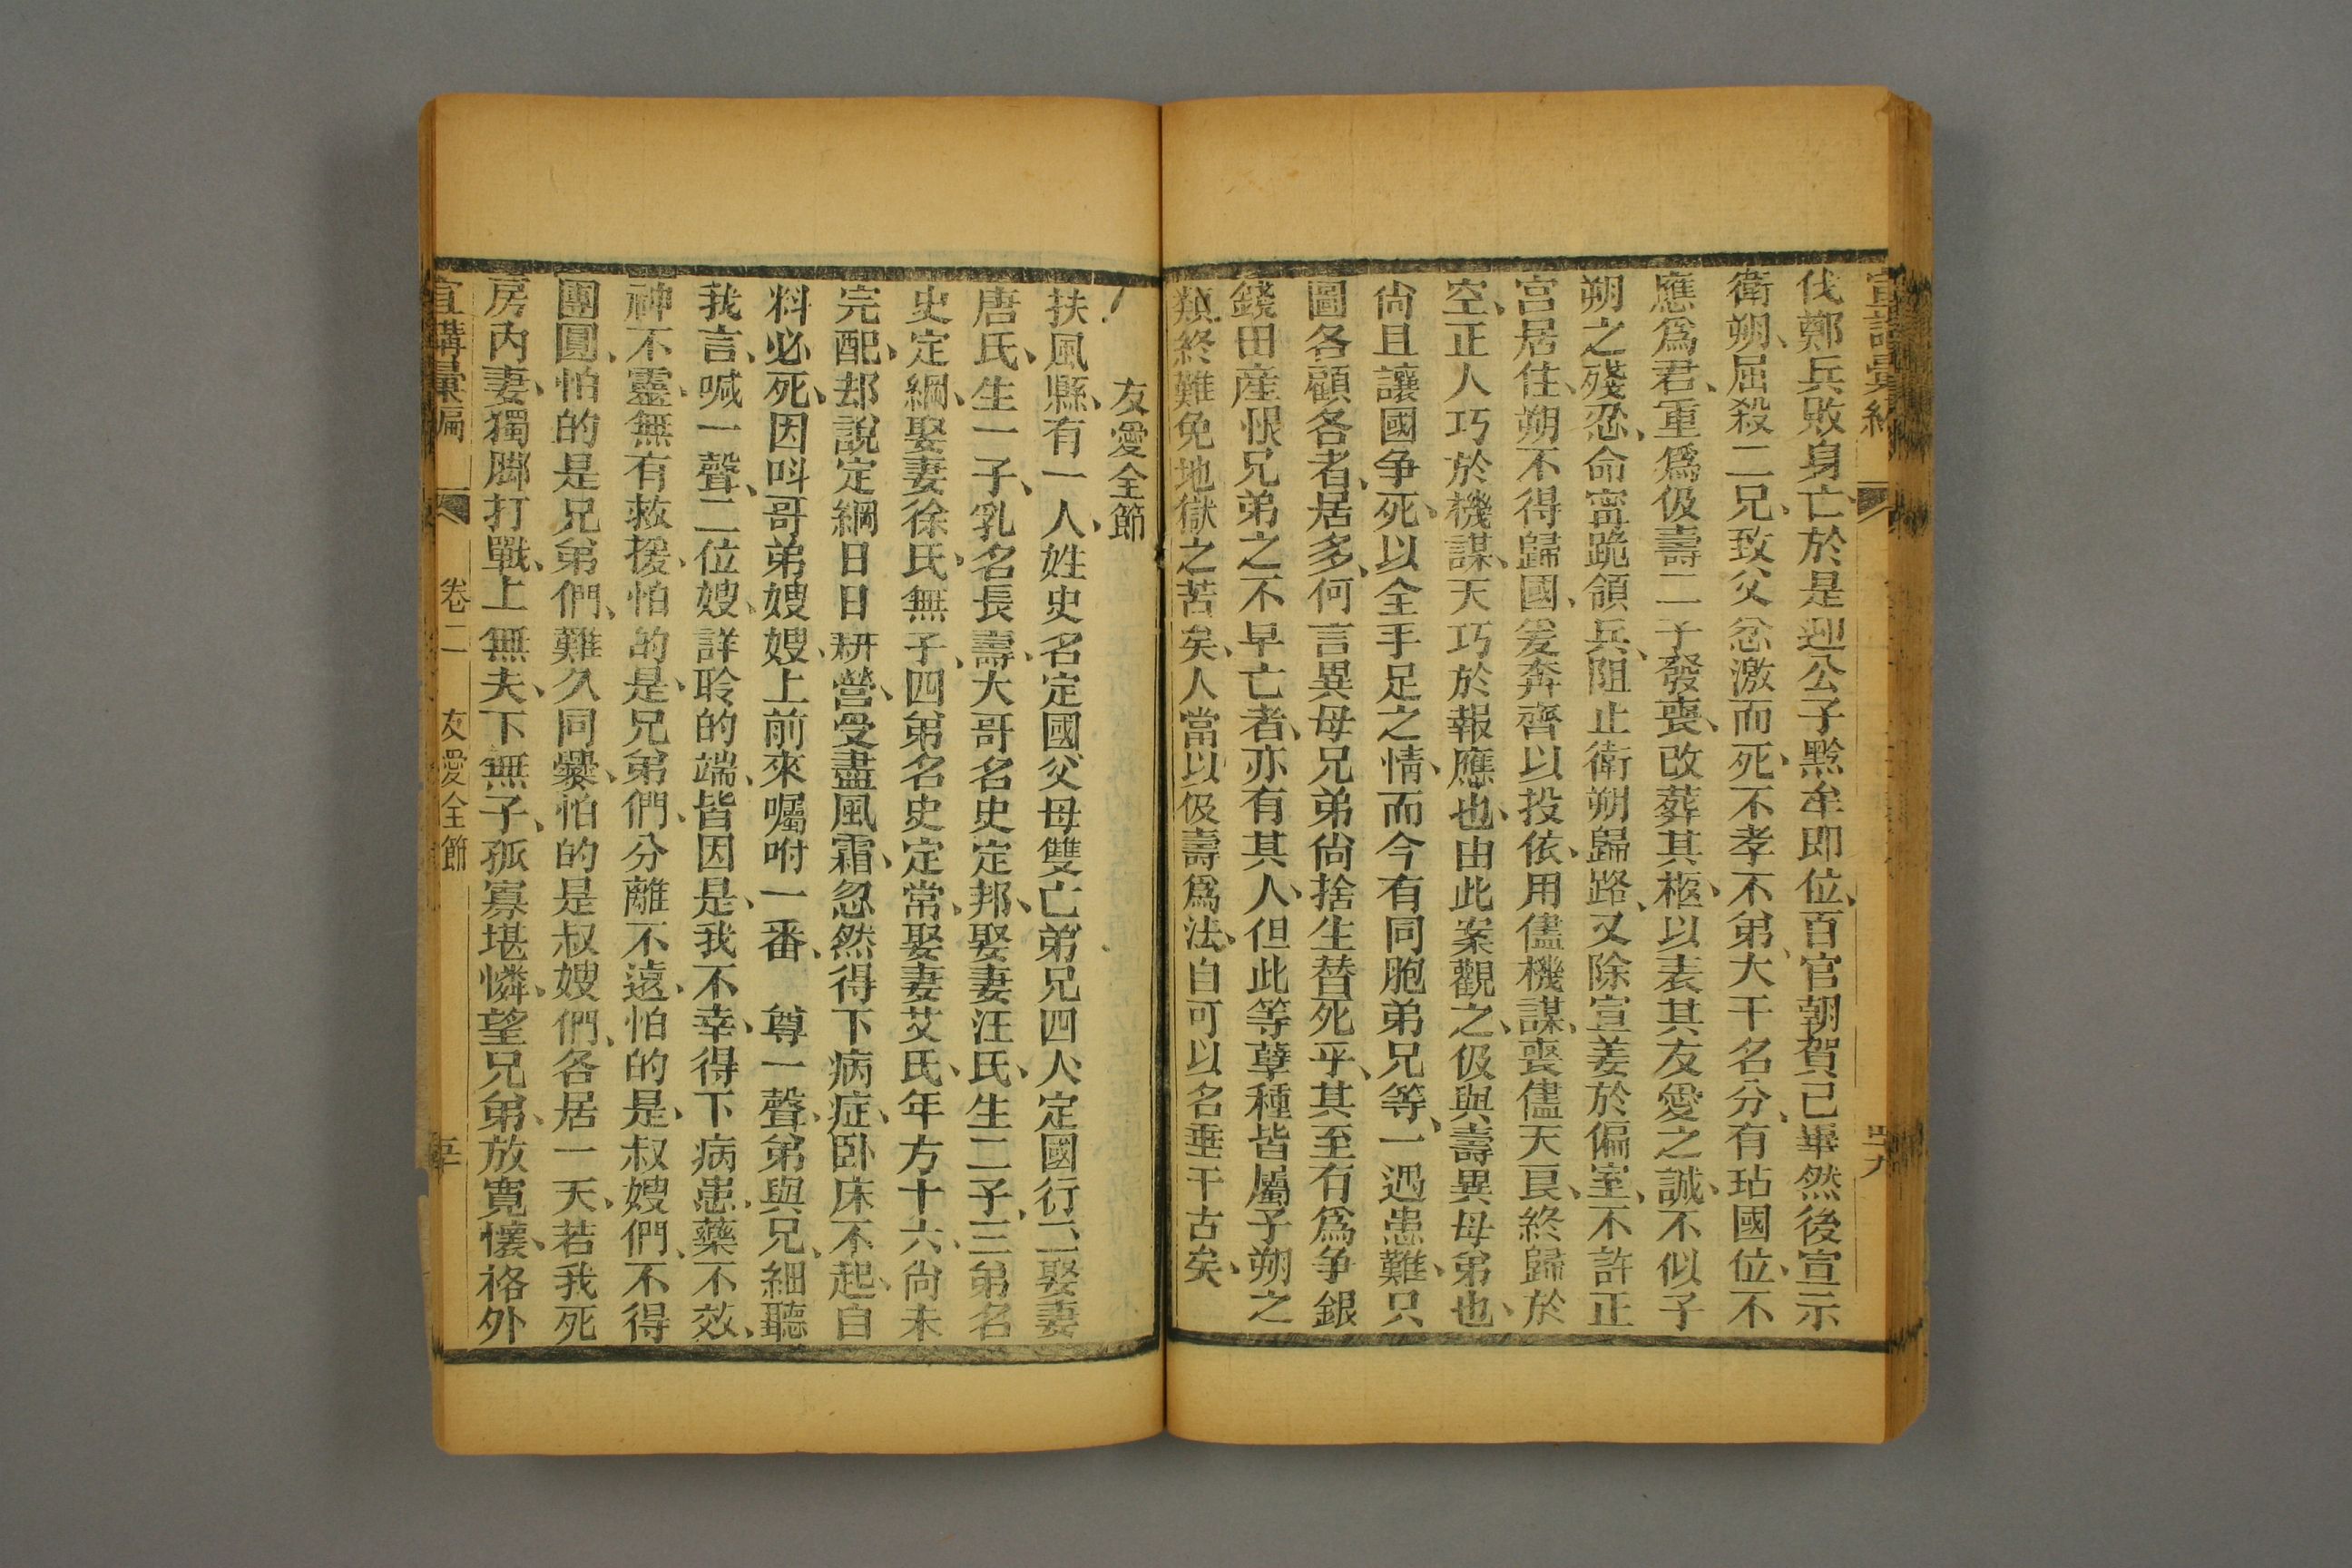 伐鄭兵敗身亡、於是迎公子黔牟即位、百官朝賀已畢然後宣示
衛朔、屈殺二兄、致父忿激而死、不孝不弟、大干名分、有玷國位、不
應爲君、重爲伋壽二子發喪、改葬其柩、以表其友愛之誠、不似子
朔之殘忍、命甯跪領兵、阻止衛朔歸路、又除宣姜於偏室、不許正
宮居住、朔不得歸國、爰奔齊以投依、用儘機謀、喪儘天良、終歸於
空、正人巧於機謀、天巧於報應也、由此案觀之、伋與壽異母弟也、
尚且讓國争死、以全手足之情、而今有同胞弟兄等、一遇患難、只
圖各顧各者、居多、何言異母兄弟尚捨生替死乎、其至有爲争銀
錢田産恨兄弟之不早亡者、亦有其人、但此等孽種皆屬子朔之
類、終難免地獄之苦矣、人當以伋壽爲法、自可以名垂千古矣、
四九
友愛全節
扶風縣、有一人、姓史名定國、父母雙亡、弟兄四人、定國行二、娶妻
唐氏、生一子、乳名長壽、大哥名史定邦、娶妻汪氏、生二子、三弟名
史定綱、娶妻徐氏、無子、四弟名史定常、娶妻艾氏、年方十六、尚未
完配、却說定綱日日耕營、受盡風霜、忽然得下病症、卧床不起、自
料必死、因呌哥弟嫂嫂、上前來囑咐一番、　尊一聲、弟與兄、細聽
我言、喊一聲、二位嫂、詳聆的端、皆因是、我不幸、得下病患、藥不效、
神不靈、無有救援、怕的是、兄弟們、分離不遠、怕的是、叔嫂們、不得
團圓、怕的是兄弟們、難久同爨、怕的是叔嫂們、各居一天、若我死
房内妻、獨脚打戰、上無夫、下無子、孤寡堪憐、望兄弟、放寬懷、格外
宣講彙編　卷二　友愛全節　五十